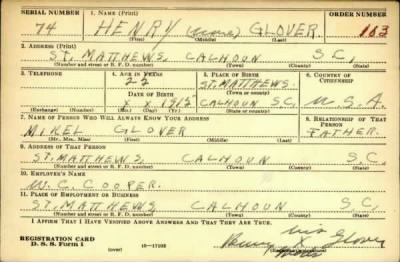 SERIAL NUMBER 1. NAME (Print) ORDER NUMBER
74 HENRY (none) GLOVER. 163
(First) (Middle) (Last)
2. ADDRESS (Print)
ST. MATTHEWS, CALHOUN SC,
(Number and street or R. F. D. number) (Town) (County) (State)
3. TELEPHONE 4. AGE IN YEARS 5. PLACE OF BIRTH 6. COUNTRY OF CITIZENSHIP
22 ST. MATTHEWS.
DATE OF BIRTH (Town or county)
X X 1918 CALHOUN SC, U.S.A.
(Exchange) (Number) (Mo.) (Day) (Yr.) (State or country)
7. NAME OF PERSON WHO WILL ALWAYS KNOW YOUR ADDRESS 8. RELATIONSHIP OF THAT PERSON
MIKEL GLOVER FATHER.
(Mr., Mrs., Miss) (First) (Middle) (Last)
9. ADDRESS OF THAT PERSON
ST. MATTHEWS, CALHOUN S.C,
(Number and street or R. F. D. number) (Town) (County) (State)
10. EMPLOYER'S NAME
W. C. COOPER.
11. PLACE OF EMPLOYMENT OR BUSINESS
ST. MATTHEWS, CALHOUN SC,
(Number and street or R. F. D. number) (Town) (County) (State)
I AFFIRM THAT I HAVE VERIFIED ABOVE ANSWERS AND THAT THEY ARE TRUE.
his
REGISTRATION CARD Henry X Glover
D. S. S. Form 1 (over) 16-17105 mark
(Registrant's signature)